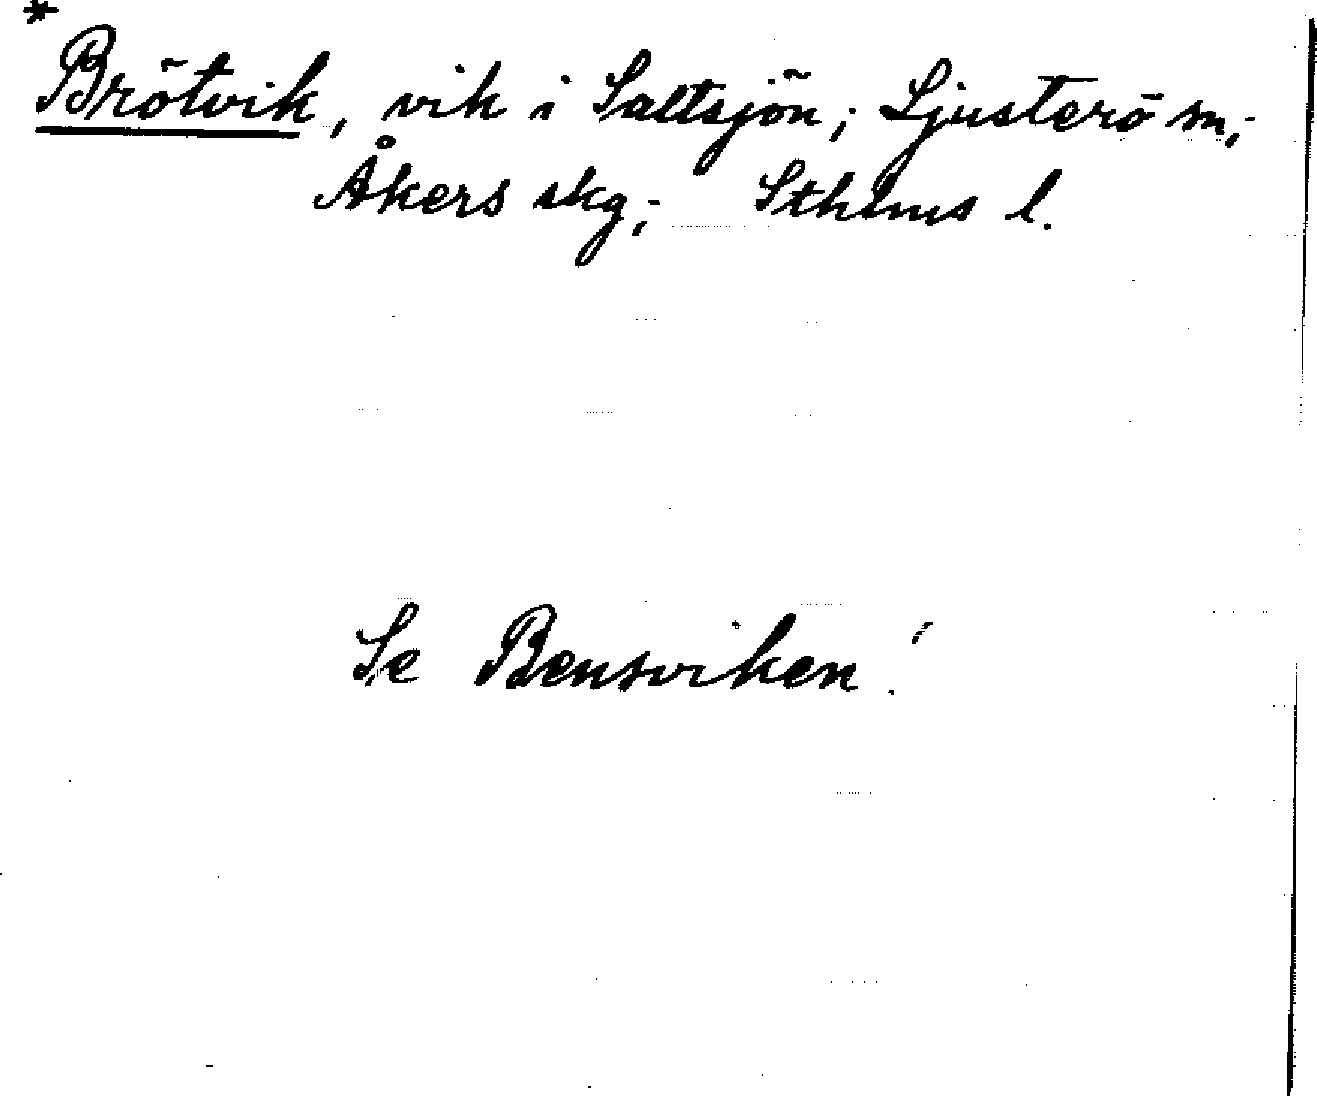 *
Brötvik, vik i Saltsjön; Ljusterö sn;
Åkers skg; Sthlms l.
Se Bensviken!